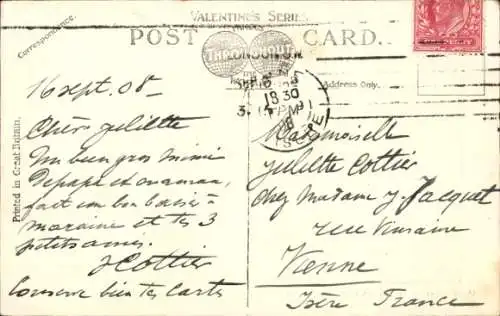 VALENTINE'S SERIES
POST CARD.
Correspondence.
Address Only.
Printed in Great Britain.
THE LONDON
18 30
16 Sept. 08
Chère Juliette
Un bien gros mimi
de papa et maman,
fait un bon baiser à
marraine et tes 3
petits amis.
J Cottier
Conserve bien tes cartes
Mademoiselle
Juliette Cottier
chez Madame J. Jacquet
rue
Vienne
Isère France